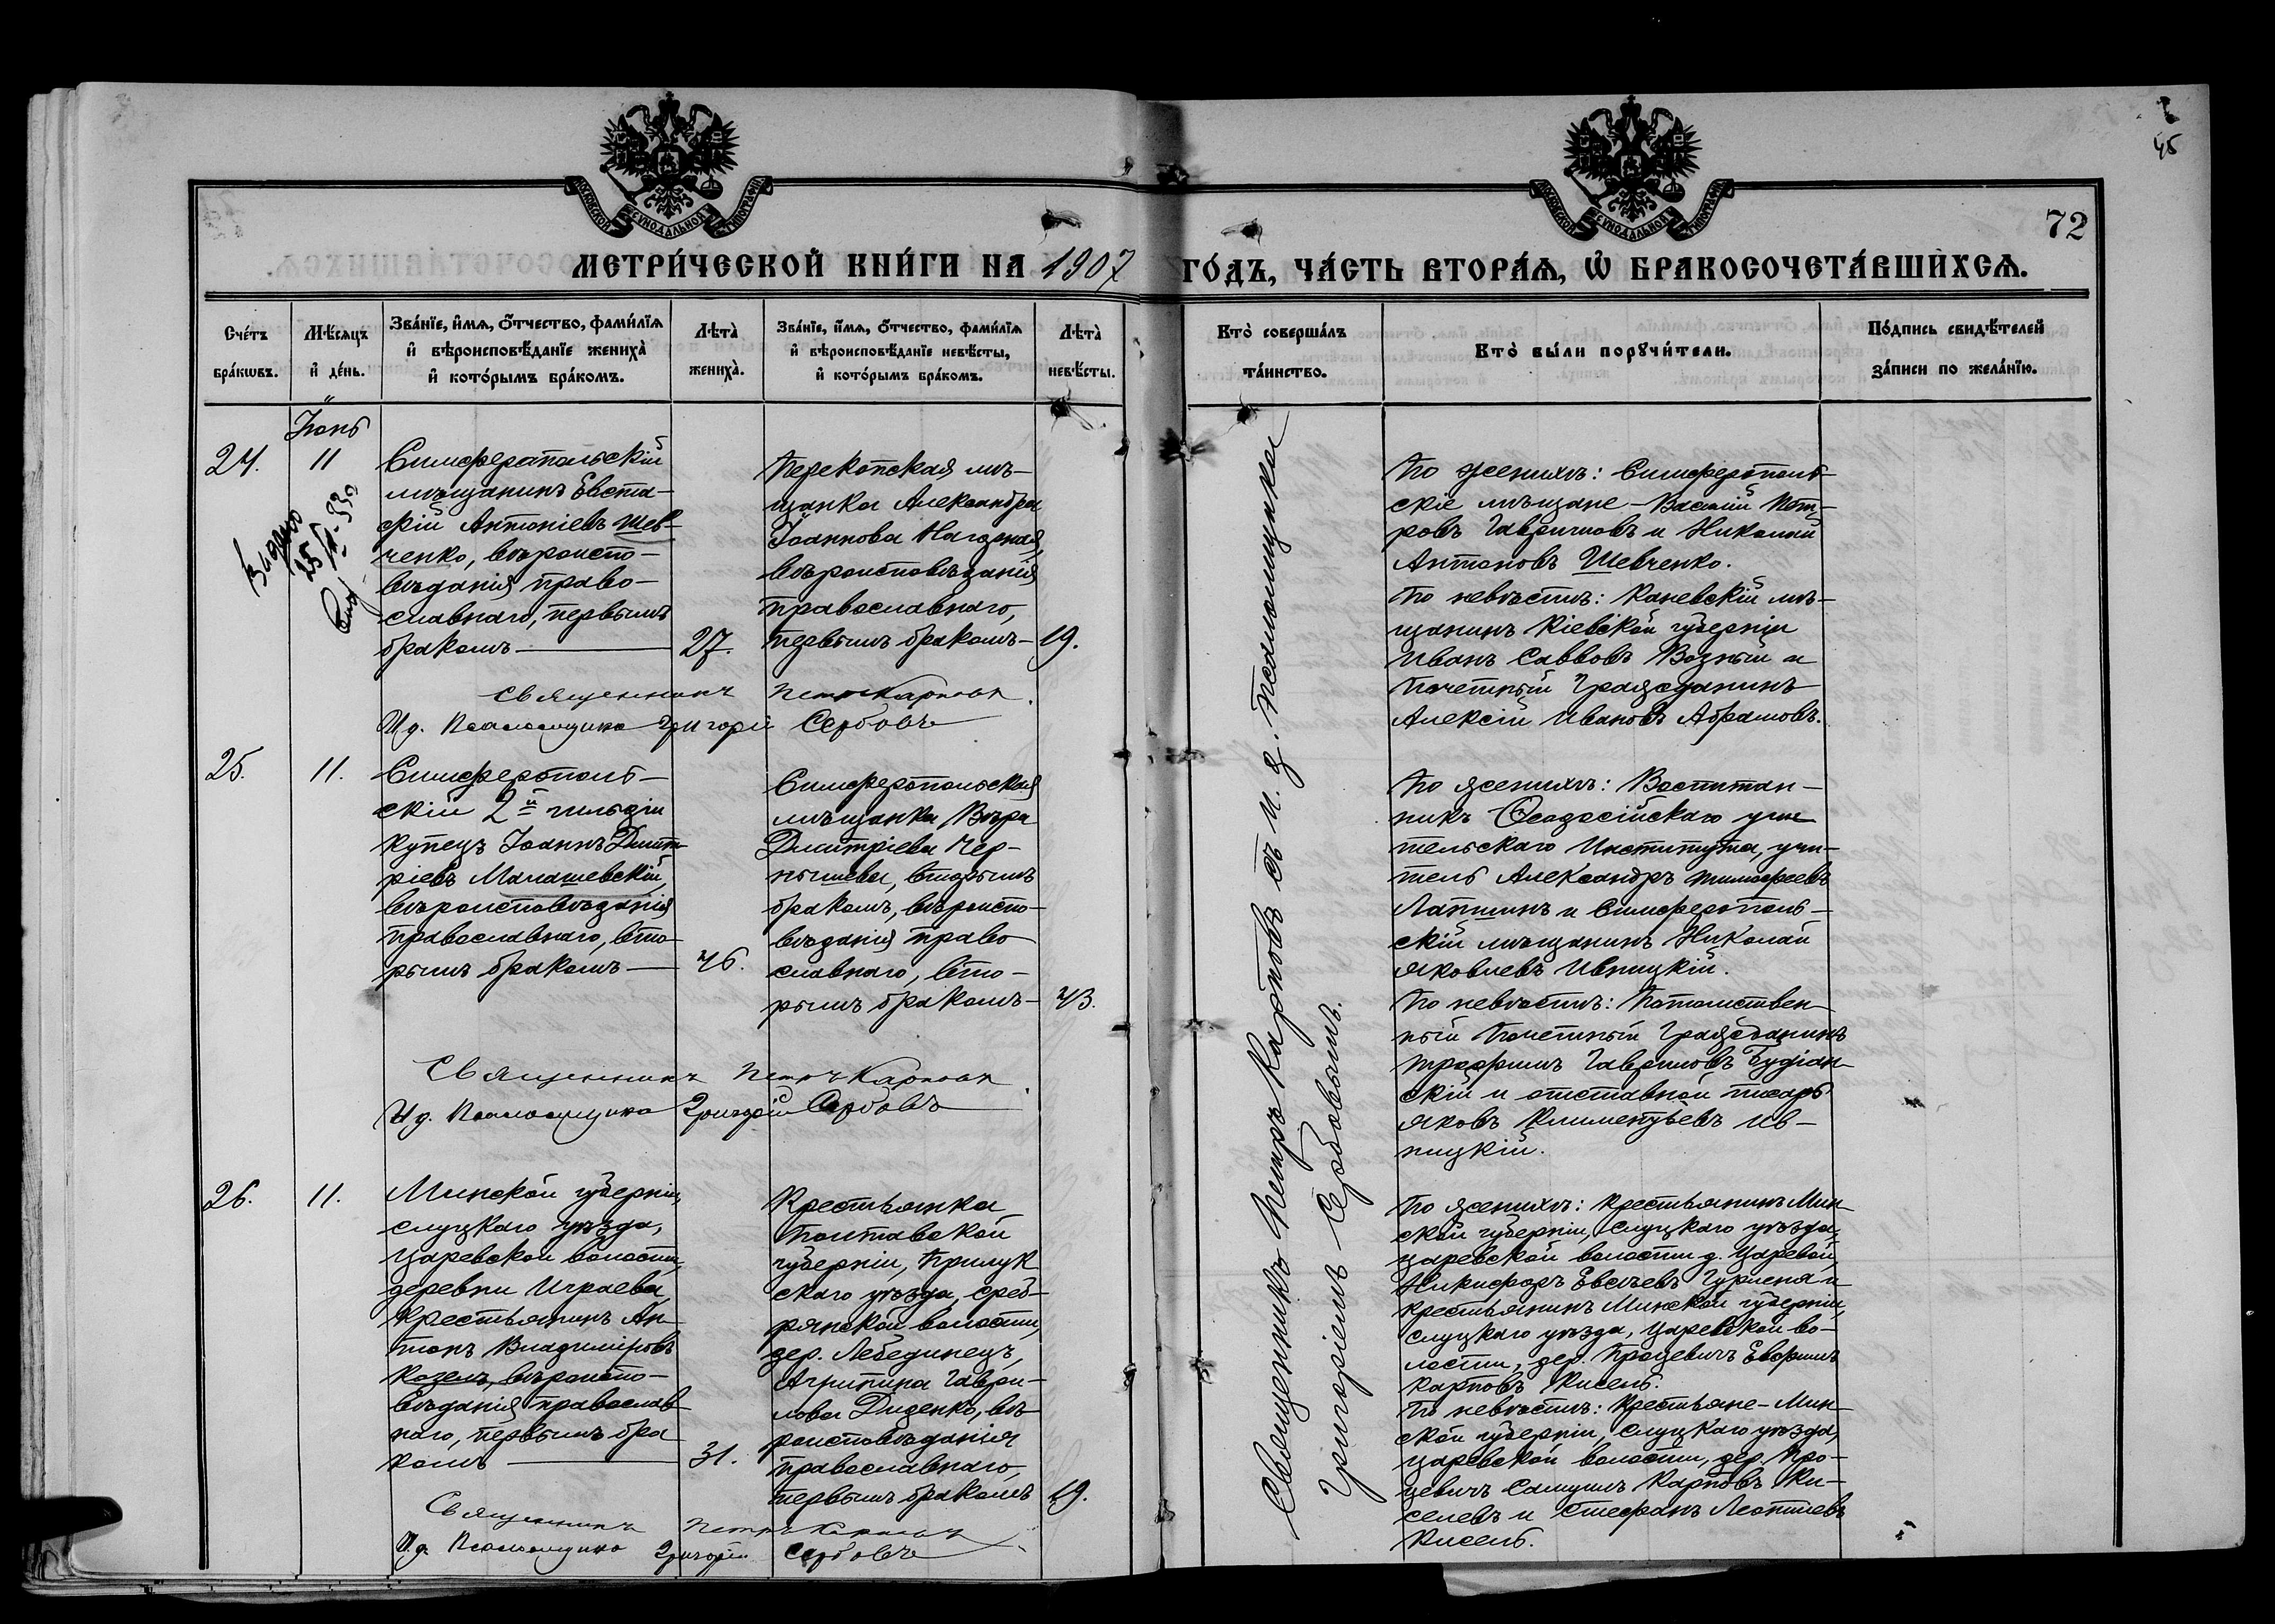 45
72
МЕТРИ́ЧЕСКОЙ КНИ́ГИ НА 1907 ГО́ДЪ, ЧА́СТЬ ВТОРА́Ѧ, Ѽ БРАКОСОЧЕТА́ВШИХСѦ.
Сче́тъ бра́кѡвъ.
Мѣ́сѧцъ и҆ де́нь.
Зва́нїе, и҆́мѧ, ѻ҆́тчество, фами́лїѧ
и҆ вѣроисповѣ́данїе жениха̀
и҆ кото́рымъ бра́комъ.
Лѣта̀ жениха̀.
Зва́нїе, и҆́мѧ, ѻ҆́тчество, фами́лїѧ
и҆ вѣроисповѣ́данїе невѣ́сты,
и҆ кото́рымъ бра́комъ.
Лѣта̀ невѣ́сты.
Кто̀ соверша́лъ та́инство.
Кто̀ бы́ли порꙋчи́тели.
По́дпись свидѣ́телей за́писи по жела́нїю.
Іюнь
24.
11
Выдано
Симферопольскій
мѣщанинъ Евста-
фій Антоніевъ Шев-
ченко, вѣроиспо-
вѣданія право-
славнаго, первымъ
бракомъ
27.
Перекопская мѣ-
щанка Александра
Іоаннова Нагорная,
вѣроисповѣданія
православнаго,
первымъ бракомъ
19.
Священникъ Петръ Карповъ
И д. Псаломщика Григорій Сербовъ
По женихѣ: Симферополь-
скіе мѣщане - Василій Пет-
ровъ Гавриловъ и Николай
Антоновъ Шевченко.
По невѣстѣ: Каневскій мѣ-
щанинъ Кіевской губерніи
Иванъ Савовъ Возный и
Почетный Гражданинъ
Алексій Ивановъ Абрамовъ.
25.
11.
Симферополь-
скій 2й гильдіи
купецъ Іоаннъ Дмит-
ріевъ Малашевскій,
вѣроисповѣданія
православнаго, вто-
рымъ бракомъ
46.
Симферопольская
мѣщанка Вѣра
Дмитріева Чер-
нышева, вторымъ
бракомъ, вѣроиспо-
вѣданія право
славнаго, вто-
рымъ бракомъ
43.
Священникъ Петръ Карповъ
И д. Псаломщика Григорій Сербовъ
По женихѣ: Воспитан-
никъ Ѳеодосійскаго учи
тельскаго Института, учи-
тель Александръ Тимофеевъ
Лапшинъ и Симферополь-
скій мѣщанинъ Николай
Яковлевъ Ивницкій.
По невѣстѣ: Потомствен-
ный Почетный Гражданинъ
Трофимъ Гавриловъ
скій и отставной писарь
Яковъ Климентьевъ Ив-
ницкій.
26.
11.
Минской губерніи,
Слуцкаго уѣзда,
Царевской волости,
деревни Играева,
крестьянинъ Ан-
тонъ Владиміровъ
Козелъ, вѣроиспо-
вѣданія православ-
наго, первымъ бра
комъ
31.
Крестьянка
Полтавской
губерніи, Прилук
скаго уѣзда, Среб-
рянской волости,
дер. Лебединецъ,
Агрипина Гаври-
лова Диденко, вѣ-
роисповѣданія
православнаго,
первымъ бракомъ
19.
Священникъ Петръ Карповъ
И д. Псаломщика Григорій Сербовъ
По женихѣ: крестьянинъ Мин-
ской губерніи, Слуцкаго уѣзда,
Царевской волости д. Царевой
Никифоръ Евсѣевъ Гурменя и
крестьянинъ Минской губерніи,
Слуцкаго уѣзда, Царевской во-
лости, дер. Процевичъ Евфимъ
Карповъ Кисель.
По невѣстѣ: крестьяне - Мин-
ской губерніи, Слуцкаго уѣзда,
Царевской волости, дер. Про-
цевичъ Самуилъ Карповъ Ки-
селевъ и Стефанъ Леонтіевъ
Кисель.
Священникъ Петръ Карповъ съ и. д. Псаломщика
Григоріемъ Сербовымъ.